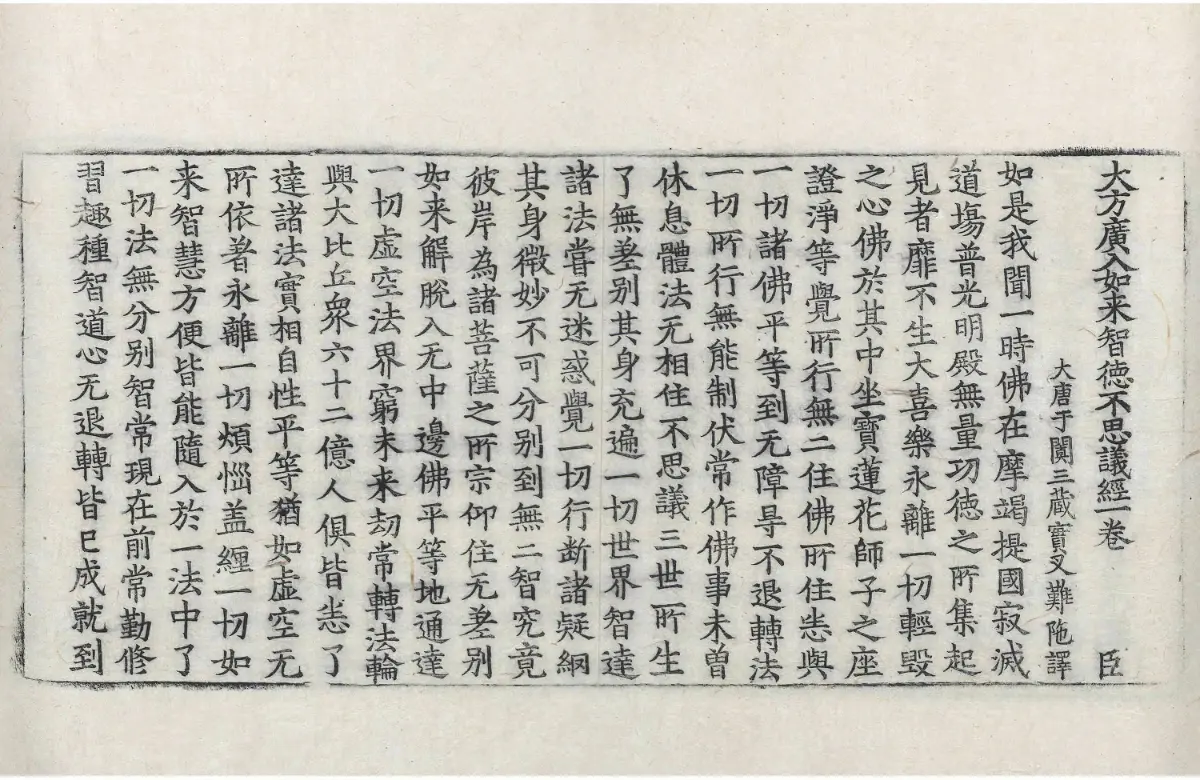 大方廣入如来智徳不思議經一卷 臣
大唐于闐三藏實叉難陁譯
如是我聞一時佛在摩竭提國寂滅
道塲普光明殿無量功徳之所集起
見者靡不生大喜樂永離一切輕毁
之心佛於其中坐寶蓮花師子之座
證淨等覺所行無二住佛所住悉與
一切諸佛平等到无障㝵不退轉法
一切所行無能制伏常作佛事未曽
休息體法无相住不思議三世所生
了無差别其身充遍一切世界智達
諸法嘗无迷惑覺一切行断諸疑網
其身微妙不可分别到無二智究竟
彼岸為諸菩薩之所宗仰住无差别
如来解脱入无中邊佛平等地通達
一切虚空法界窮未来劫常轉法輪
與大比丘衆六十二億人俱皆悉了
達諸法實相自性平等猶如虚空无
所依著永離一切煩惱盖纏一切如
来智慧方便皆能隨入於一法中了
一切法無分别智常現在前常勤修
習趣種智道心无退轉皆已成就到